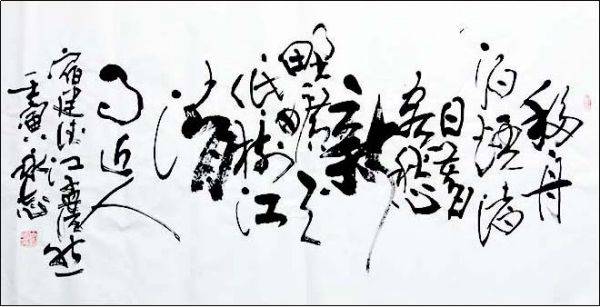 移舟
泊煙渚
日暮
客愁
新
野曠天
低树江
清
月近人
宿建德江孟浩然
壬寅